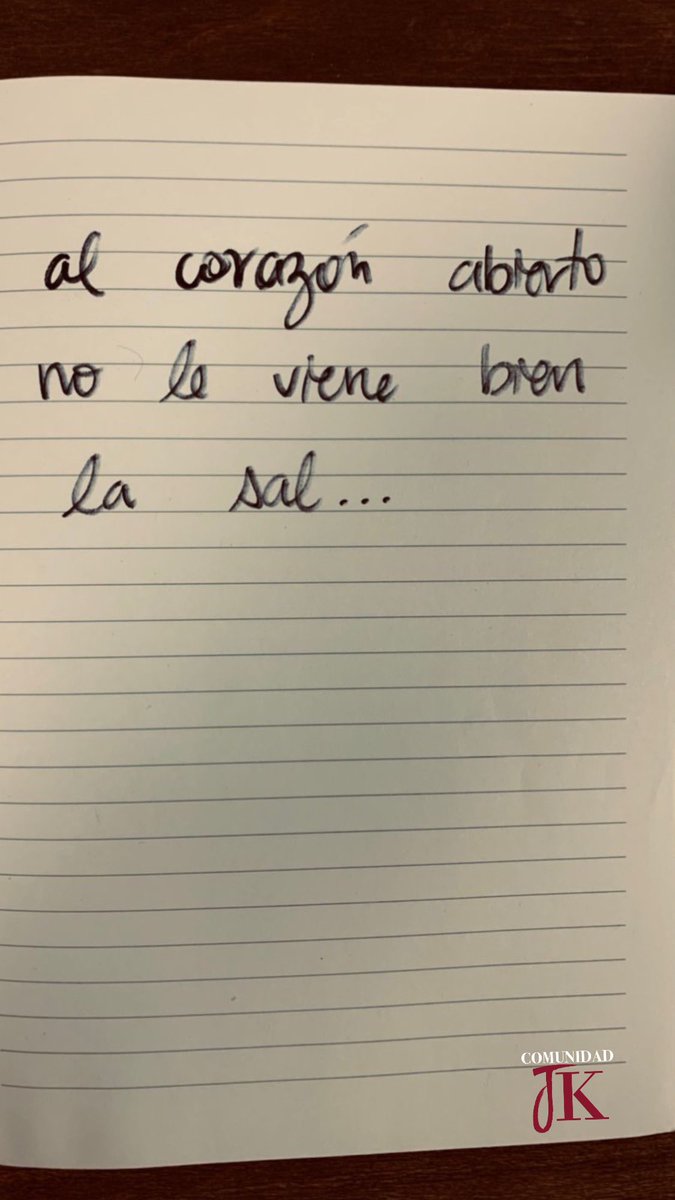 al corazón abierto
no le viene bien
la sal...
COMUNIDAD
JK